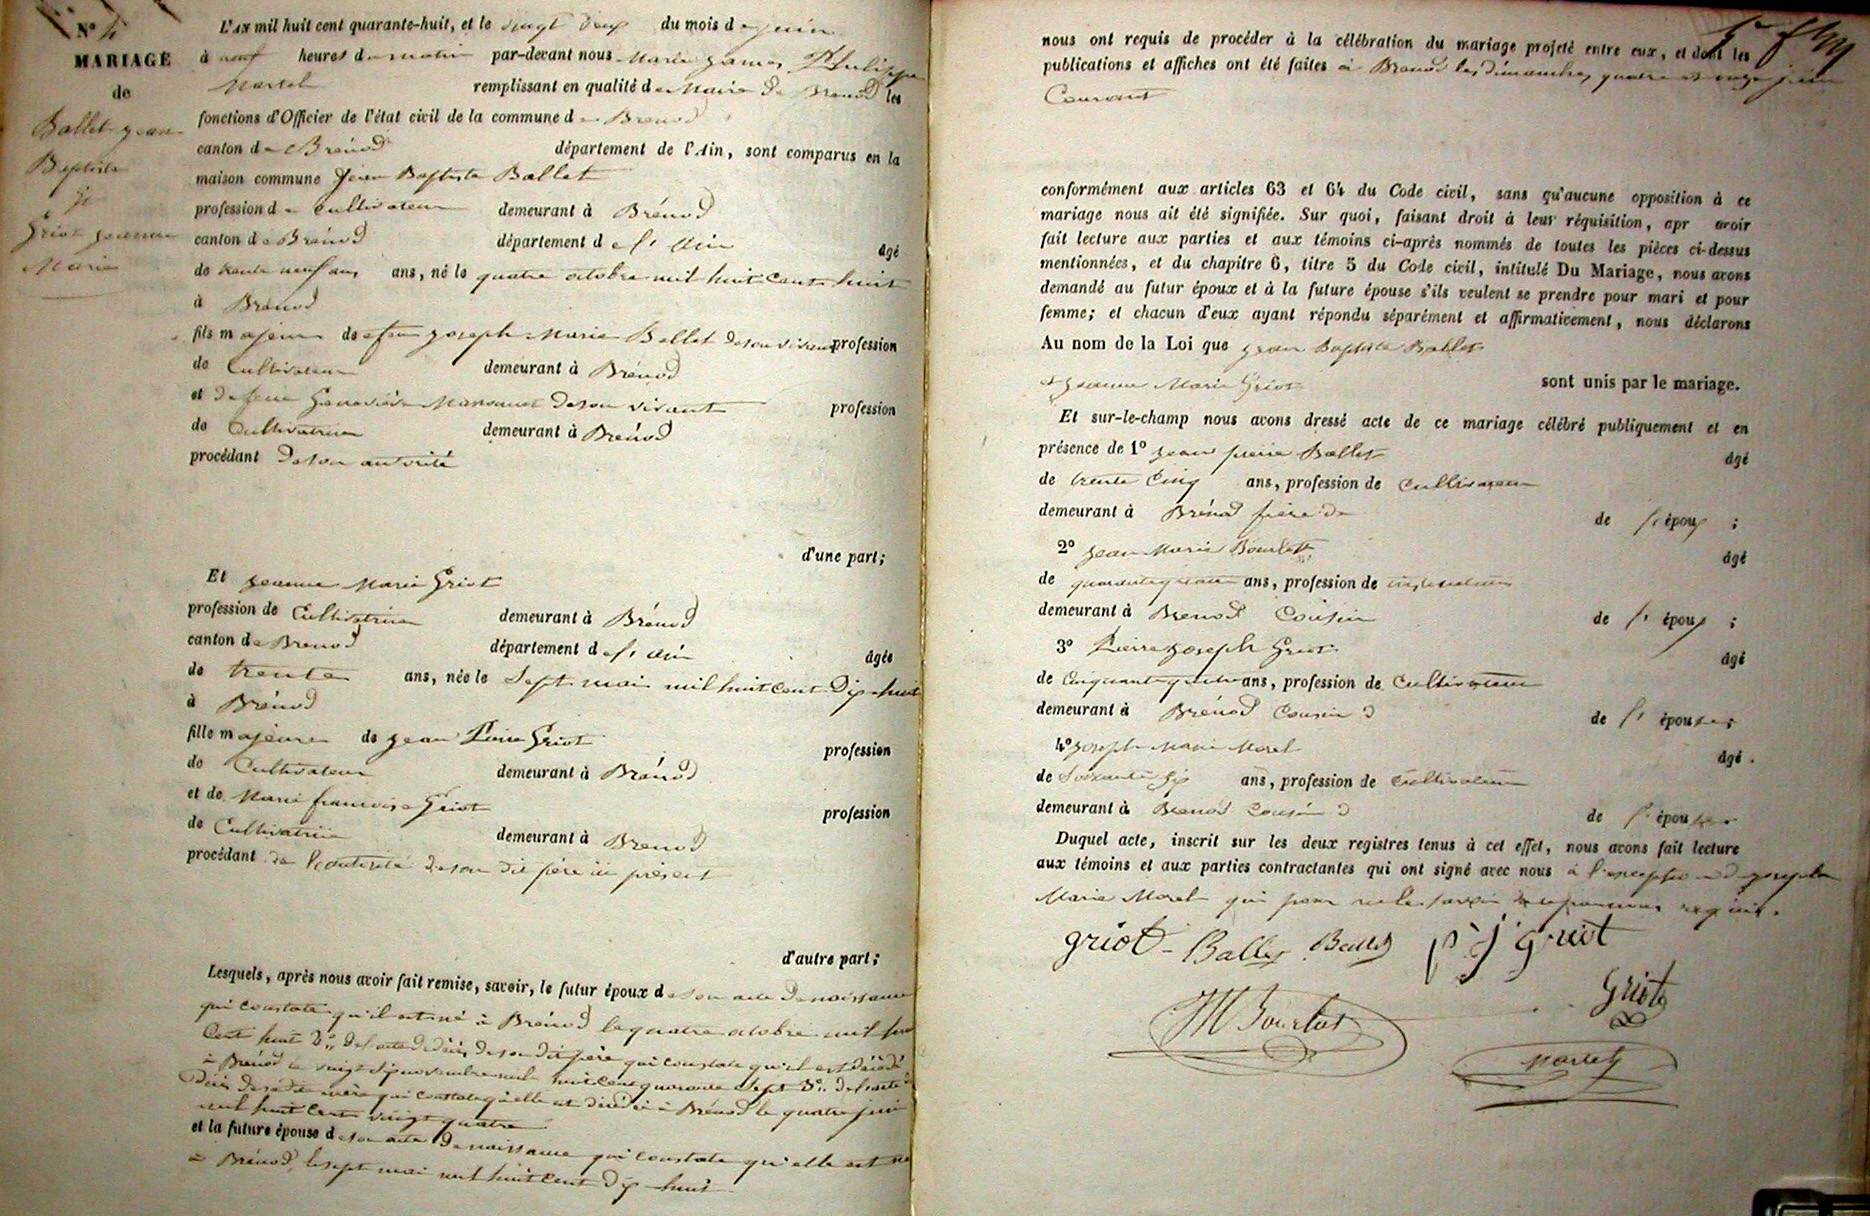 N° 4
MARIAGE
de
Ballet jean
Baptiste
&
Griot jeanne
Marie
L'AN mil huit cent quarante-huit, et le vingt deux du mois de juin
à neuf heures du matin par-devant nous Marie James Philippe
Martel remplissant en qualité de Maire de Brenod les
fonctions d'Officier de l'état civil de la commune de Brenod
canton de Brénod département de l'Ain, sont comparus en la
maison commune Jean Baptiste Ballet
profession de cultivateur demeurant à Brénod
canton de Brénod département de l'Ain âgé
de trente neuf ans ans, né le quatre octobre mil huit cent huit
à Brénod
fils majeur de feu joseph Marie Ballet de son vivant profession
de Cultivateur demeurant à Brénod
et de feue Geneviève de son vivant profession
de Cultivatrice demeurant à Brénod
procédant de son autorité
d'une part;
Et jeanne Marie Griot
profession de Cultivatrice demeurant à Brénod
canton de Brenod département de l'Ain âgée
de trente ans, née le Sept mai mil huit cent Dix-huit
à Brénod
fille majeure de jean Pierre Griot profession
de Cultivateur demeurant à Brénod
et de Marie françoise Griot profession
de Cultivatrice demeurant à Brenod
procédant de l'autorité de son dit père ici présent
d'autre part;
Lesquels, après nous avoir fait remise, savoir, le futur époux de son acte de naissance
qui constate qu'il est né à Brénod le quatre octobre mil huit
Cent huit 2° de l'acte de décès de son dit père qui constate qu'il est décédé
à Brénod le vingt novembre mil huit cent quarante sept 3° de l'acte de
décès de sa dite mère qui constate qu'elle est décédée à Brénod le quatre juin
mil huit cent vingt quatre
et la future épouse de son acte de naissance qui constate qu'elle est née
à Brénod, le sept mai mil huit cent dix-huit
nous ont requis de procéder à la célébration du mariage projeté entre eux, et dont les
publications et affiches ont été faites à Brenod les dimanches quatre et onze juin
Courant
conformément aux articles 63 et 64 du Code civil, sans qu'aucune opposition à ce
mariage nous ait été signifiée. Sur quoi, faisant droit à leur réquisition, apr avoir
fait lecture aux parties et aux témoins ci-après nommés de toutes les pièces ci-dessus
mentionnées, et du chapitre 6, titre 5 du Code civil, intitulé Du Mariage, nous avons
demandé au futur époux et à la future épouse s'ils veulent se prendre pour mari et pour
femme; et chacun d'eux ayant répondu séparément et affirmativement, nous déclarons
Au nom de la Loi que jean Baptiste Ballet
et jeanne Marie Griot sont unis par le mariage.
Et sur-le-champ nous avons dressé acte de ce mariage célébré publiquement et en
présence de 1° jean pierre Ballet âgé
de trente Cinq ans, profession de Cultivateur
demeurant à Brénod frère de de l'époux ;
2° jean Marie Bourlot âgé
de quarante quatre ans, profession de
demeurant à Brenod Cousin de l'époux ;
3° Pierre joseph Griot âgé
de Cinquante quatre ans, profession de Cultivateur
demeurant à Brénod Cousin d de l'épouse;
4° joseph Marie Morel âgé
de Soixante Six ans, profession de Cultivateur
demeurant à Brenod Cousin d de l'épouse
Duquel acte, inscrit sur les deux registres tenus à cet effet, nous avons fait lecture
aux témoins et aux parties contractantes qui ont signé avec nous à l'exception de joseph
Marie Morel qui pour ne le savoir requis.
griot Ballet Ballet p j griot
Griot
JM Bourlot
Martel